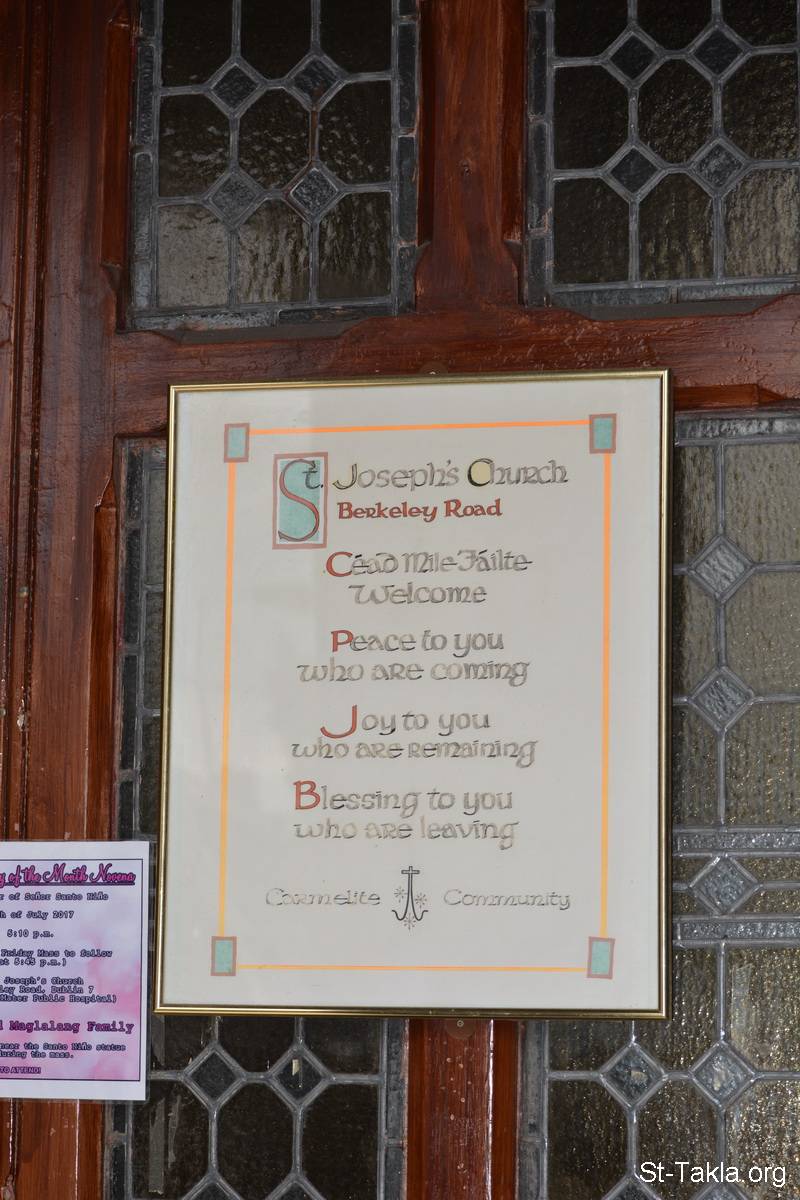 St. Joseph's Church
Berkeley Road
Céad Mile Fáilte
Welcome
Peace to you
who are coming
Joy to you
who are remaining
Blessing to you
who are leaving
Carmelite Community
of the Month Novena
of Señor Santo Niño
of July 2017
5:10 p.m.
Friday Mass to follow
at 5:45 p.m.)
Joseph's Church
Road, Dublin 7
Mater Public Hospital)
Maglalang Family
near the Santo Niño statue
during the mass.
TO ATTEND!
St-Takla.org